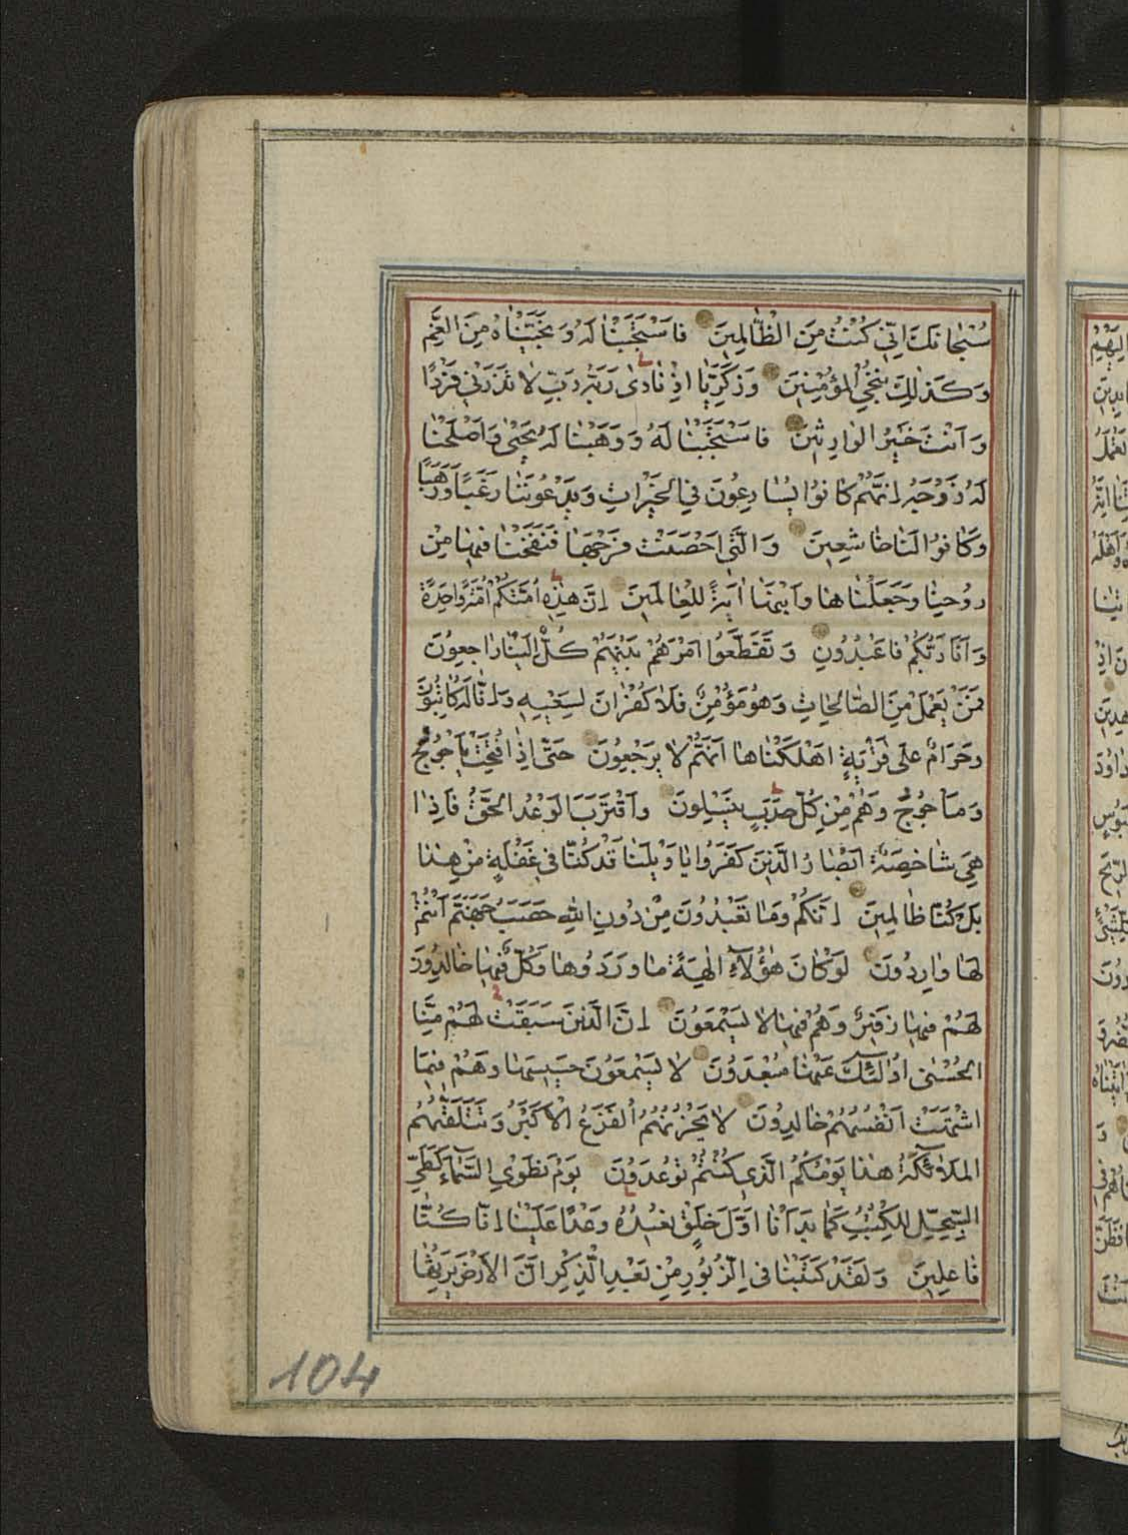 سُبْحَانَكَ اِنّي كُنْتُ مِنَ الْظّالِمِينَ فَاسْتَجَبْنَا لَهُ وَنَجَّيْنَاهُ مِنَ الْغَمِّ
وَكَذٰلِكَ نُنْجِي الْمُؤْمِنِينَ وَزَكَرِيَّا اِذْ نَادٰى رَبَّهُ رَبِّ لَا تَذَرْنِي فَرْدًا
وَاَنْتَ خَيْرُ الْوَارِثِينَ فَاسْتَجَبْنَا لَهُ وَوَهَبْنَا لَهُ يَحْيٰى وَاَصْلَحْنَا
لَهُ زَوْجَهُ اِنَّهُمْ كَانُوا يُسَارِعُونَ فِي الْخَيْرَاتِ وَيَدْعُونَنَا رَغَبًا وَرَهَبًا
وَكَانُوا لَنَا خَاشِعِينَ وَالَّتِي اَحْصَنَتْ فَرْجَهَا فَنَفَخْنَا فِيهَا مِنْ
رُوحِنَا وَجَعَلْنَاهَا وَابْنَهَا اٰيَةً لِلْعَالَمِينَ اِنَّ هٰذِهِ اُمَّتُكُمْ اُمَّةً وَاحِدَةً
وَاَنَا رَبُّكُمْ فَاعْبُدُونِ وَتَقَطَّعُوا اَمْرَهُمْ بَيْنَهُمْ كُلٌّ اِلَيْنَا رَاجِعُونَ
فَمَنْ يَعْمَلْ مِنَ الصَّالِحَاتِ وَهُوَ مُؤْمِنٌ فَلَا كُفْرَانَ لِسَعْيِهِ وَاِنَّا لَهُ كَاتِبُونَ
وَحَرَامٌ عَلٰى قَرْيَةٍ اَهْلَكْنَاهَا اَنَّهُمْ لَا يَرْجِعُونَ حَتّٰى اِذَا فُتِحَتْ يَأْجُوجُ
وَمَأْجُوجُ وَهُمْ مِنْ كُلِّ حَدَبٍ يَنْسِلُونَ وَاقْتَرَبَ الْوَعْدُ الْحَقُّ فَاِذَا
هِيَ شَاخِصَةٌ اَبْصَارُ الَّذِينَ كَفَرُوا يَا وَيْلَنَا قَدْ كُنَّا فِي غَفْلَةٍ مِنْ هٰذَا
بَلْ كُنَّا ظَالِمِينَ اِنَّكُمْ وَمَا تَعْبُدُونَ مِنْ دُونِ اللّٰهِ حَصَبُ جَهَنَّمَ اَنْتُمْ
لَهَا وَارِدُونَ لَوْ كَانَ هٰؤُلَاءِ اٰلِهَةً مَا وَرَدُوهَا وَكُلٌّ فِيهَا خَالِدُونَ
لَهُمْ فِيهَا زَفِيرٌ وَهُمْ فِيهَا لَا يَسْمَعُونَ اِنَّ الَّذِينَ سَبَقَتْ لَهُمْ مِنَّا
الْحُسْنٰى اُولٰئِكَ عَنْهَا مُبْعَدُونَ لَا يَسْمَعُونَ حَسِيسَهَا وَهُمْ فِيمَا
اشْتَهَتْ اَنْفُسُهُمْ خَالِدُونَ لَا يَحْزُنُهُمُ الْفَزَعُ الْاَكْبَرُ وَتَتَلَقّٰيهُمُ
الْمَلَائِكَةُ هٰذَا يَوْمُكُمُ الَّذِي كُنْتُمْ تُوعَدُونَ يَوْمَ نَطْوِي السَّمَاءَ كَطَيِّ
السِّجِلِّ لِلْكُتُبِ كَمَا بَدَأْنَا اَوَّلَ خَلْقٍ نُعِيدُهُ وَعْدًا عَلَيْنَا اِنَّا كُنَّا
فَاعِلِينَ وَلَقَدْ كَتَبْنَا فِي الزَّبُورِ مِنْ بَعْدِ الْذِّكْرِ اَنَّ الْاَرْضَ يَرِثُهَا
104